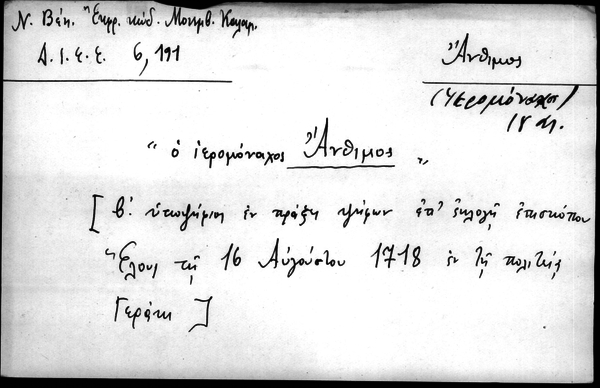 Ν. Βέη. Ἔκφρ. κώδ. Μονεμβ. Καλαμ.
Δ.Ι.Ε.Ε. 6, 191
Ἄνθιμος
(Ἱερομόναχος)
18 αι.
“ ὁ ἱερομόναχος Ἄνθιμος „
[ β.' ὑποψήφιος ἐν πράξει ψήφων ἐπ' ἐκλογῇ ἐπισκόπου
Ἕλους τῇ 16 Αὐγούστου 1718 ἐν τῇ πολιτείᾳ
Γεράκι ]